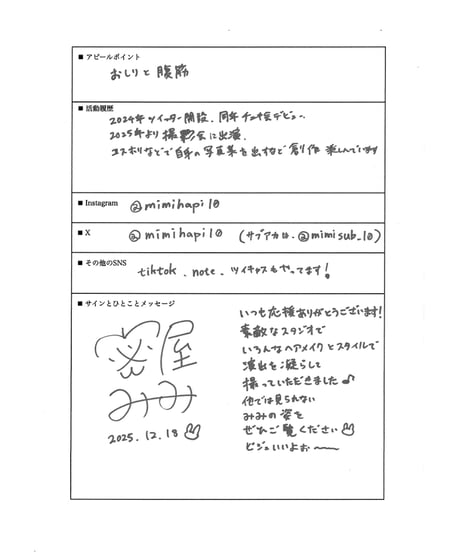 ■ アピールポイント
おしりと腹筋
■ 活動履歴
2024年ツイッター開設、同年チェキ会デビュー、
2025年より撮影会に出演。
コスホリなどで自身の写真集を出すなど創作楽しんでいます
■ Instagram @mimihapi10
■ X @mimihapi10 (サブアカは、@mimisub_10)
■ その他のSNS
tiktok、note、ツイキャスもやってます!
■ サインとひとことメッセージ
蜜屋
みみ
2025.12.18
いつも応援ありがとうございます!
素敵なスタジオで
いろんなヘアメイクとスタイルで
演出を凝らして
撮っていただきました♪
他では見られない
みみの姿を
ぜひご覧ください
ビジュいいよぉ〜